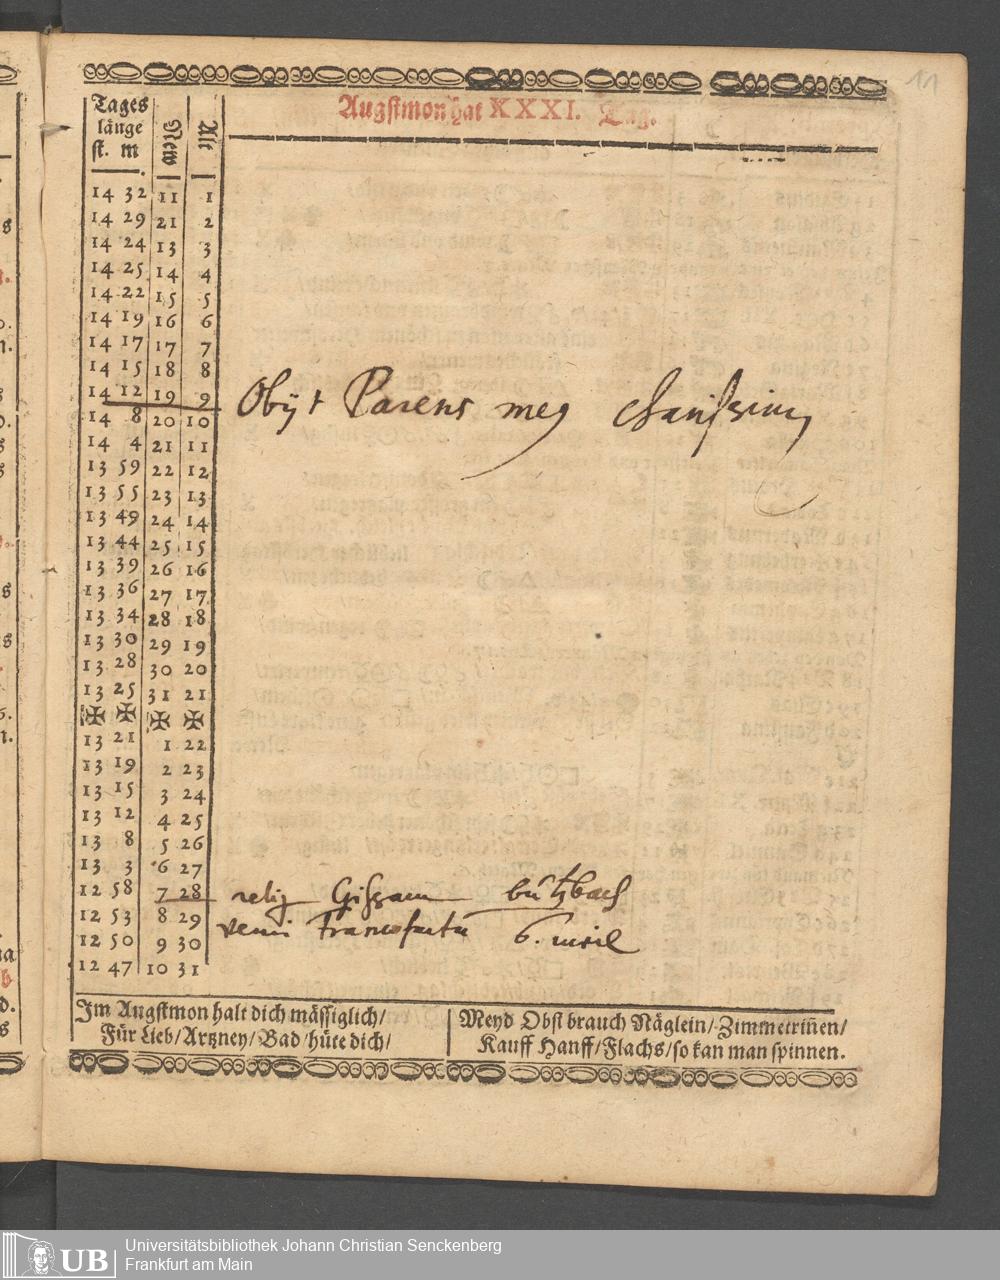 11
Augstmon hat XXXI. Tag.
Tages
länge
st. m New Alt
14 32 11 1
14 29 21 2
14 24 13 3
14 25 14 4
14 22 15 5
14 19 16 6
14 17 17 7
14 15 18 8
14 12 19 9 Obijt Parens meus charissimus
14 8 20 10
14 4 21 11
13 59 22 12
13 55 23 13
13 49 24 14
13 44 25 15
13 39 26 16
13 36 27 17
13 34 28 18
13 30 29 19
13 28 30 20
13 25 31 21
✠ ✠ ✠ ✠
13 21 1 22
13 19 2 23
13 15 3 24
13 12 4 25
13 8 5 26
13 3 6 27
12 58 7 28 Gissam butzbach
12 53 8 29 veni Francofurtu 6.
12 50 9 30
12 47 10 31
Im Augstmon halt dich mässiglich/
Für Lieb/Artzney/Bad/hüte dich/
Meyd Obst brauch Näglein/Zimmetrinen/
Kauff Hanff/Flachs/so kan man spinnen.
UB Universitätsbibliothek Johann Christian Senckenberg
Frankfurt am Main